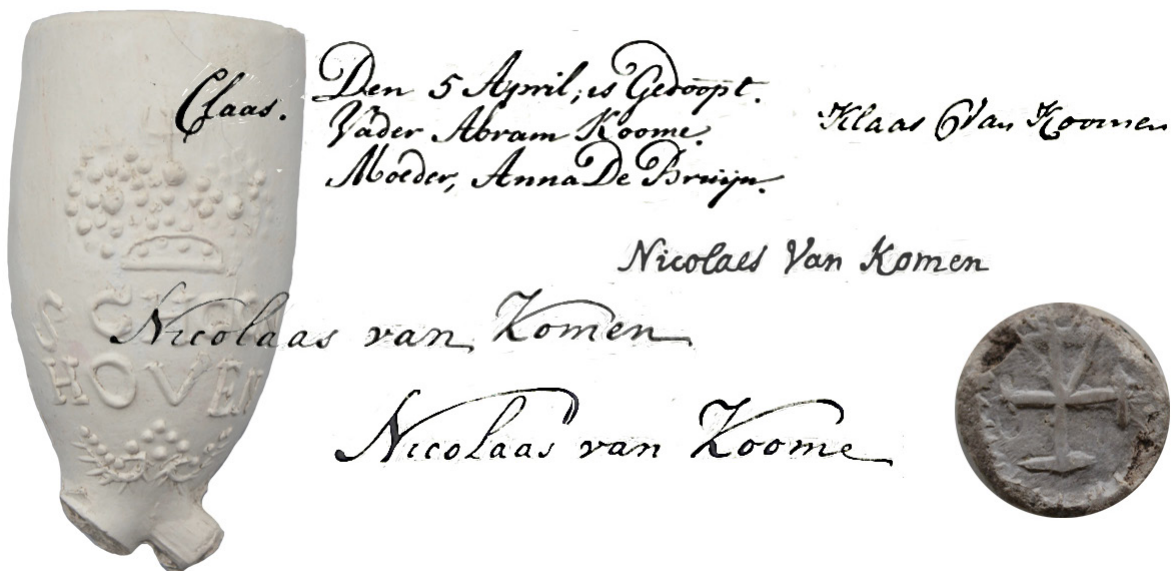 Claas. Den 5 April, is Gedoopt.
Vader Abram Koome.
Moeder, Anna De Bruijn.
Klaas Van Koomen
Nicolaes Van Komen
SCHOON
HOVEN
Nicolaas van Komen
Nicolaas van Koome